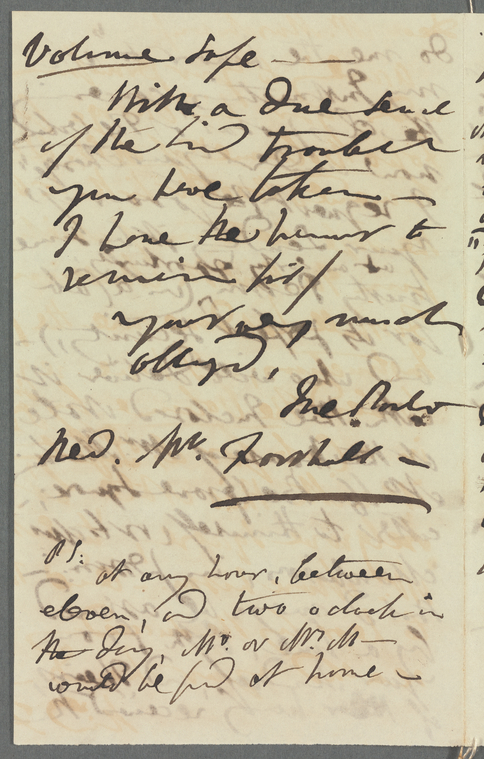 Volume safe —
With a due sense
of the kind trouble
you have taken —
I have the honour to
remain Sir/
your very much
obliged,
Jne Porter
Revd. Mr. Forshall —
PS: at any hour, between
eleven, and two o clock in
the day, Mr. or Mrs. M—
would be found at home —